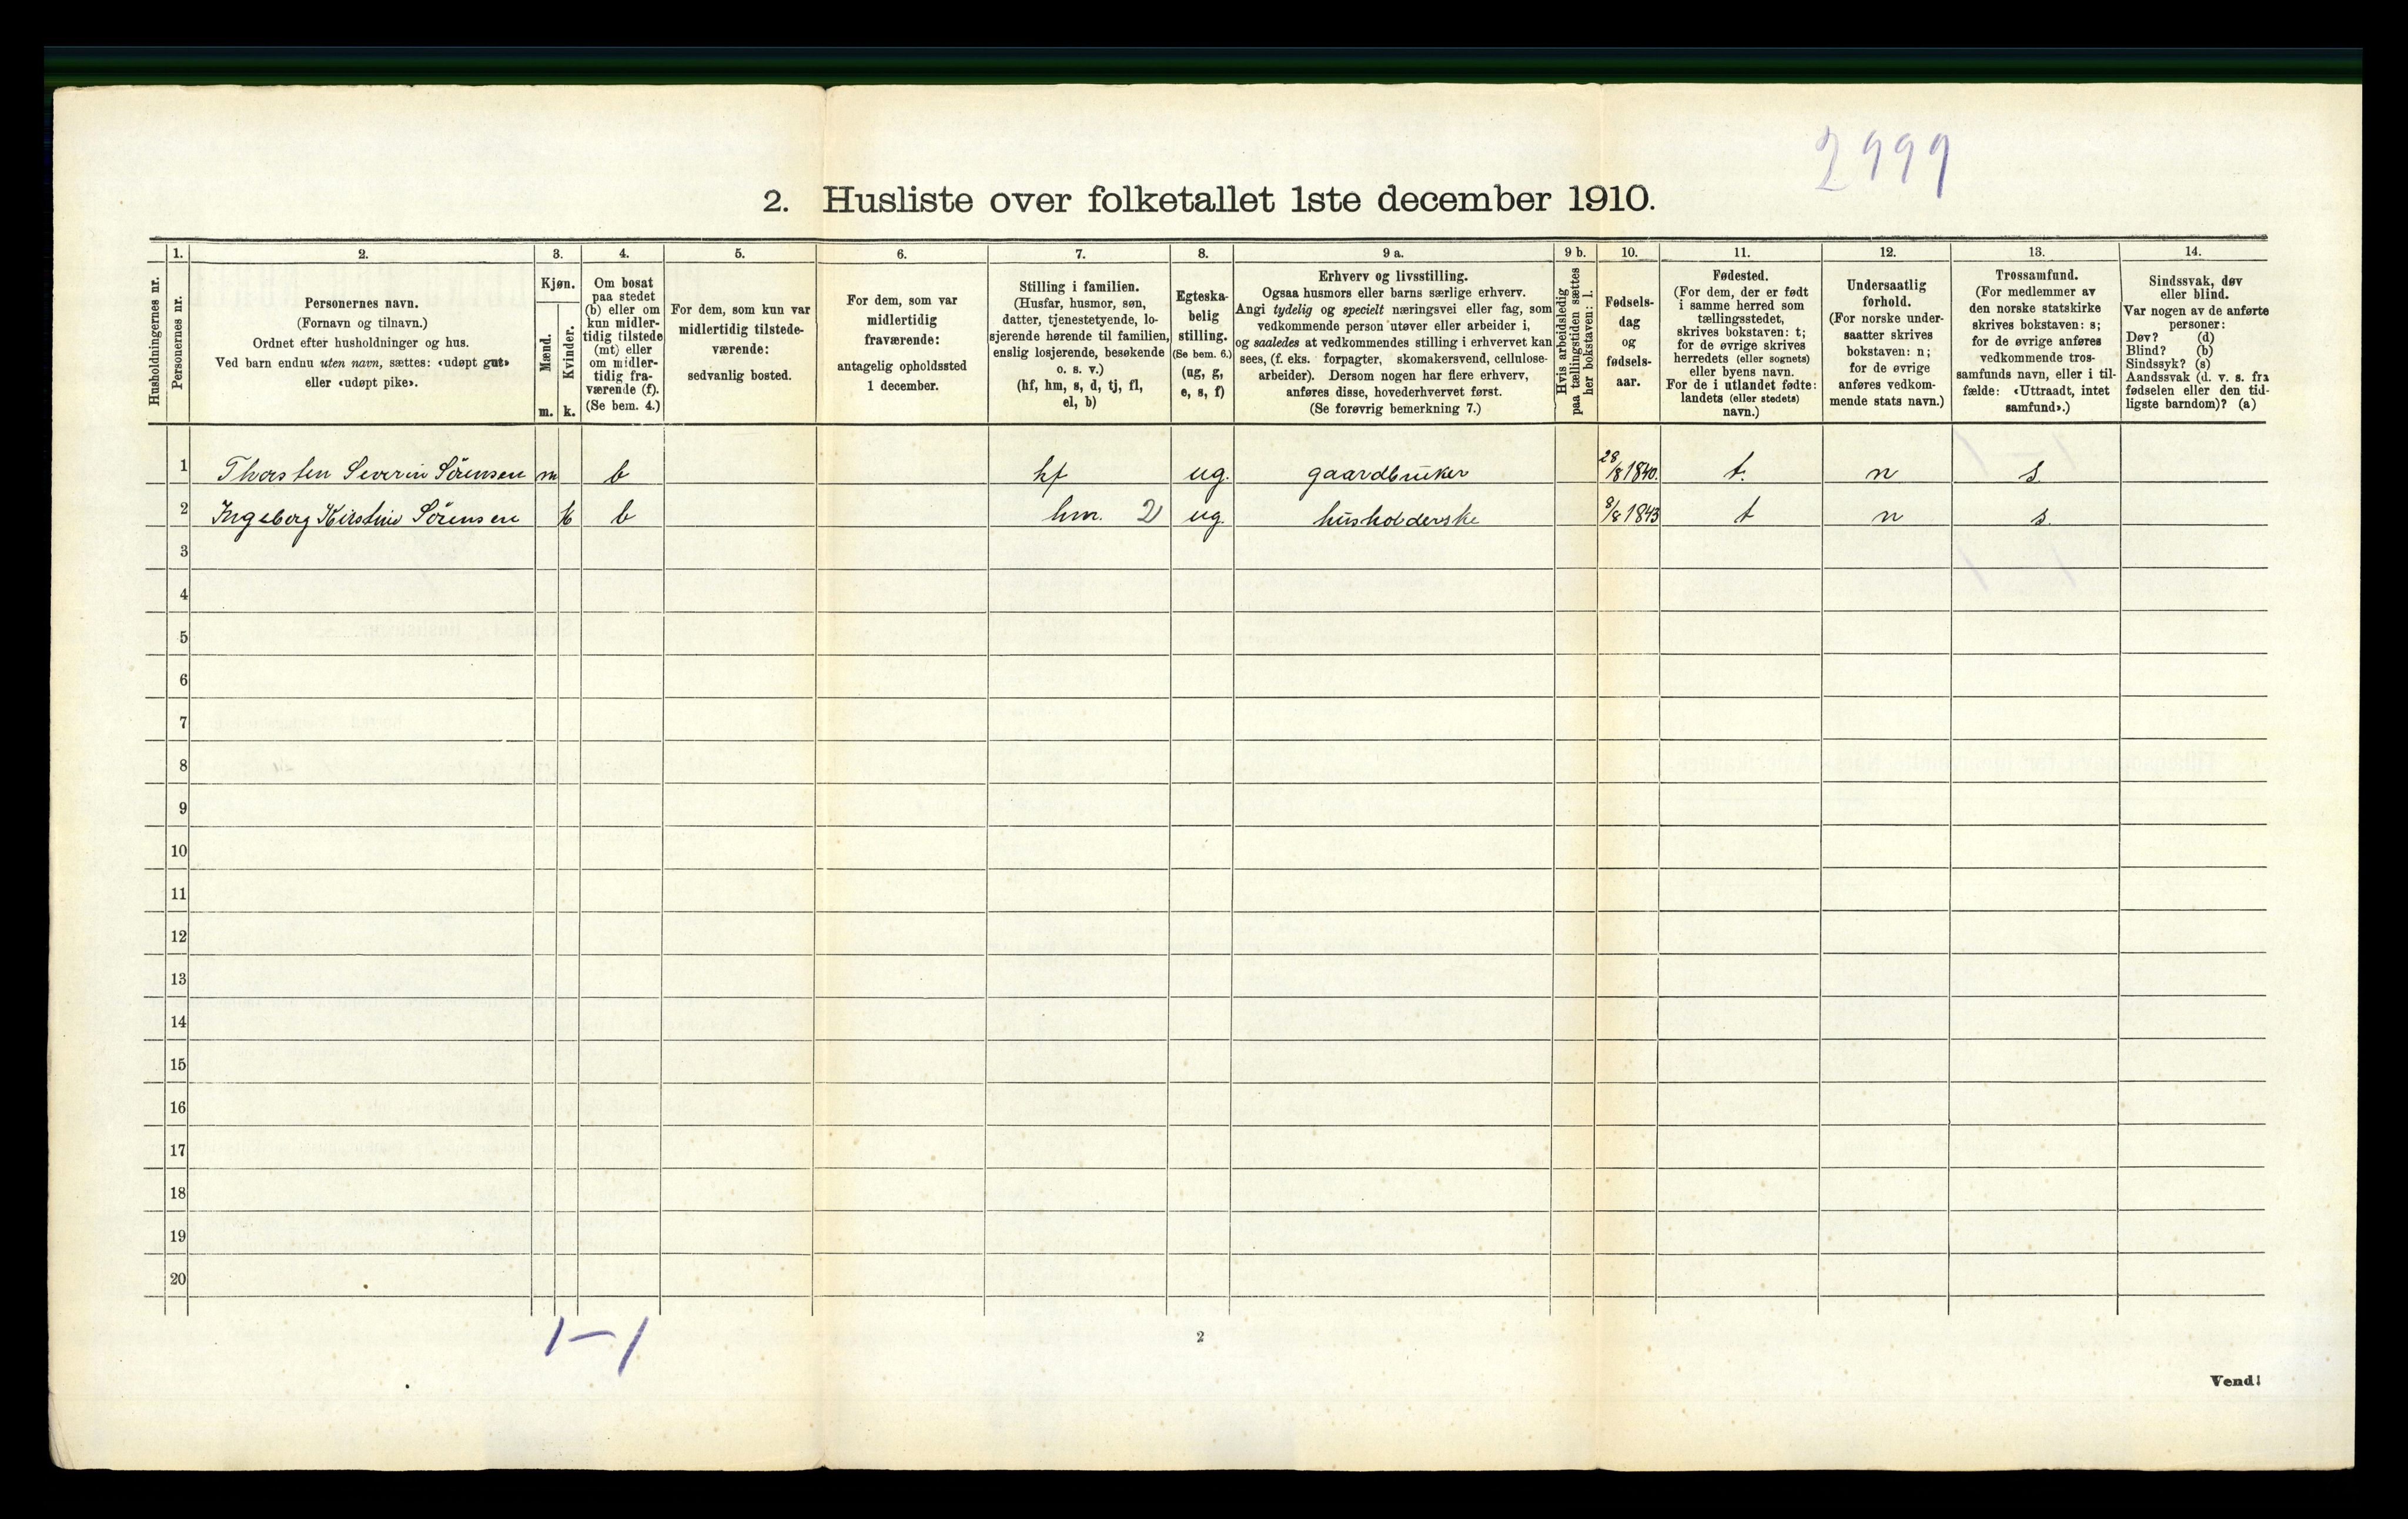 2999
2. Husliste over folketallet 1ste december 1910.
Husholdningernes nr.
1.
Personernes nr.
2.
Personernes navn.
(Fornavn og tilnavn.)
Ordnet efter husholdninger og hus.
Ved barn endnu uten navn, sættes: «udøpt gut»
eller «udøpt pike».
3.
Kjøn.
Mænd.
m.
Kvinder.
k.
4.
Om bosat
paa stedet
(b) eller om
kun midler-
tidig tilstede
(mt) eller
om midler-
tidig fra-
værende (f).
(Se bem. 4.)
5.
For dem, som kun var
midlertidig tilstede-
værende:
sedvanlig bosted.
6.
For dem, som var
midlertidig
fraværende:
antagelig opholdssted
1 december.
7.
Stilling i familien.
(Husfar, husmor, søn,
datter, tjenestetyende, lo-
sjerende hørende til familien,
enslig losjerende, besøkende
o. s. v.)
(hf, hm, s, d, tj, fl,
el, b)
8.
Egteska-
belig
stilling.
(Se bem. 6.)
(ug, g,
e, s, f)
9 a.
Erhverv og livsstilling.
Ogsaa husmors eller barns særlige erhverv.
Angi tydelig og specielt næringsvei eller fag, som
vedkommende person utøver eller arbeider i,
og saaledes at vedkommendes stilling i erhvervet kan
sees, (f. eks. forpagter, skomakersvend, cellulose-
arbeider). Dersom nogen har flere erhverv,
anføres disse, hovederhvervet først.
(Se forøvrig bemerkning 7.)
9 b.
Hvis arbeidsledig
paa tællingstiden sættes
her bokstaven: l.
10.
Fødsels-
dag
og
fødsels-
aar.
11.
Fødested.
(For dem, der er født
i samme herred som
tællingsstedet,
skrives bokstaven: t;
for de øvrige skrives
herredets (eller sognets)
eller byens navn.
For de i utlandet fødte:
landets (eller stedets)
navn.)
12.
Undersaatlig
forhold.
(For norske under-
saatter skrives
bokstaven: n;
for de øvrige
anføres vedkom-
mende stats navn.)
13.
Trossamfund.
(For medlemmer av
den norske statskirke
skrives bokstaven: s;
for de øvrige anføres
vedkommende tros-
samfunds navn, eller i til-
fælde: «Uttraadt, intet
samfund».)
14.
Sindssvak, døv
eller blind.
Var nogen av de anførte
personer:
Døv? (d)
Blind? (b)
Sindssyk? (s)
Aandssvak (d. v. s. fra
fødselen eller den tid-
ligste barndom)? (a)
1 Thorsten Severin Sörensen m b hf ug. gaardbruker 28/8 1840. t. n s.
2 Ingeborg Kirstine Sörensen k b hm. 2 ug. husholderske 8/8 1843 t n s.
3
4
5
6
7
8
9
10
11
12
13
14
15
16
17
18
19
20
1–1
2
Vend!